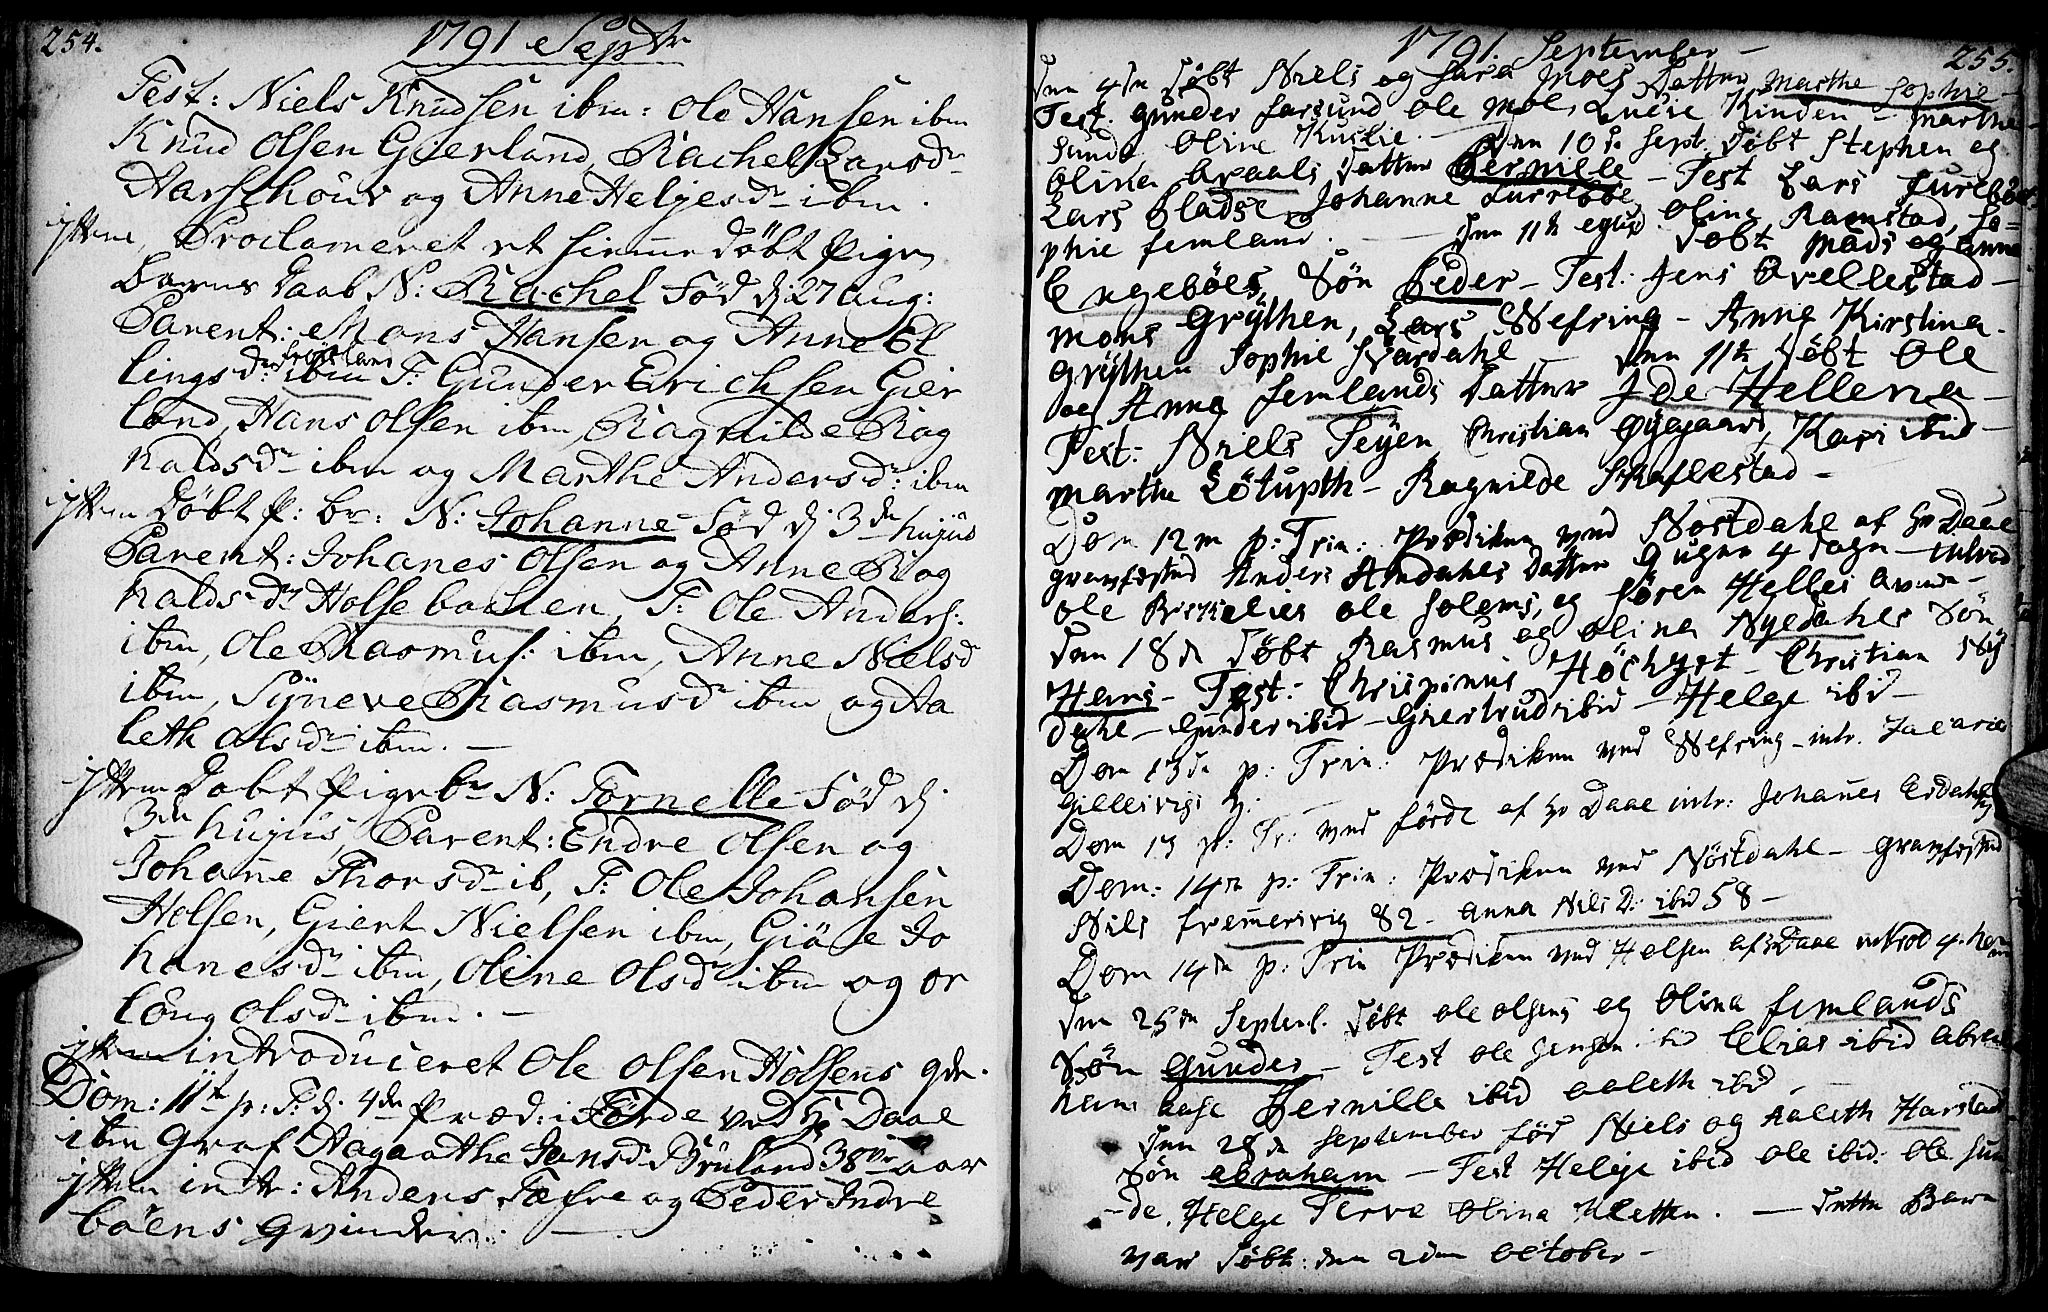 254.
1791 Septr
Test: Niels Knudsen ibm: Ole Hansen ibm
Knud Olsen Gierland, Rachel Larsdr
Aarschour og Anne Helgesdr ibm.
Ittem, Proclameret et hiemme døbt Pige
Barns Daab N: Rachel Fød dj 27 aug:
Parent: Mons Hansen og Anne El
lingsdr ibm T: Gunder Erichsen Gier
land, Hans Olsen ibm, Ragnilde Rag
naldsdr ibm og Marthe Andersdr: ibm
Ittem Døbt P: br: N: Johanne Fød dj 3de hujus
Parent: Johanes Olsen og Anne Rag
naldsdr Holsebachen, T: Ole Anders:
ibm, Ole Rasmus: ibm, Anne Nielsd
ibm, Syneve Rasmusdr ibm og Aa
leth Olsdr ibm. —
Ittem Døbt Pigebn N: Pornelle Fød dj
3de hujus, Parent: Endre Olsen og
Johane Thorsdr ib, T: Ole Johansen
Holsen, Giert Nielsen ibm, Giöae Jo
hanesdr ibm, Oline Olsdr ibm og or
laug Olsdr ibm. —
Ittem introduceret Ole Olsen Holsens qde.
Dom: 11te p: T: dj 4de Præd: i Førde ved Hr Daae
ibm Graf Aagaathe Jansdr Bruland 38 aar
Ittem intr: Anders Tæfre og Peder Indre
böens Qvinder. —
1791. September —
255.
Den 4de Døbt Niels og Sara Moes Datter Marthe Sophie —
Test. Gunder Farsund Ole Moe, Lucie Kinden — Marthe
Sunde, Oline Kuslie. — Den 10de Sept. Døbt Stephen og
Olina Aaraals Datter Pernille — Test Lars Furebøe
Lars Fladse Johanne Furebøe, Oline Ramstad, So=
phie Femland. — Den 11te Døbt Mads og Anna
Engebøes Søn Peder — Test: Jens Qvellestad —
Mons Grythen, Lars Nefring — Anna Kirstina
Grythen Sophie Svardahl — Den 11te Døbt Ole
og Anna Femlands Datter Ide Hellena —
Test: Niels Teyen Christian Øygaard, Kari ibid —
Marthe Løtupth — Ragnilde Skaflestad —
Dom 12te p: Trin: Prædiken ved Nøstdahl af Hr Daae
gravfested Anders Andahls Datter 9 uger 4 dage — introd
Ole Ole Solems, og Søren Helles qvinde —
Den 18de Døbt Rasmus og Olina Nyedahls Søn
Hans — Test: Chrispinus Höchgst — Christian Ny
dahl — Gunder ibid — Giertrud ibid — Helge ibid —
Dom 13de p: Trin: Prædiken ved Nefring — intr. Zacarie
Gillesvigs q:
Dom 13 p: Tr: ved Førde af Hr Daae intr: Johanes Erdahls
Dom: 14de p: Trin: Prædiken ved Nøstdahl — Gravfested
Nils Fremersvig 82 — Anna Nils D: ibid 58 —
Dom 14de p: Trin Prædiken ved Holsen af Hr Daae introd 4
Den 25de Septemb. Døbt Ole Olsens og Olina Femlands
Søn Gunder — Test Ole Jensen ibid Elias ibid Abra
ham Aase Pernille ibid Aaleth ibid. —
Den 28de September Fød Niels og Aaleth Harstad
Søn Abraham — Test Helge ibid Ole ibid. Ole Sun
=de, Helge Terve Olina Kletten. — Dette Barn
var Døbt den 2den October —